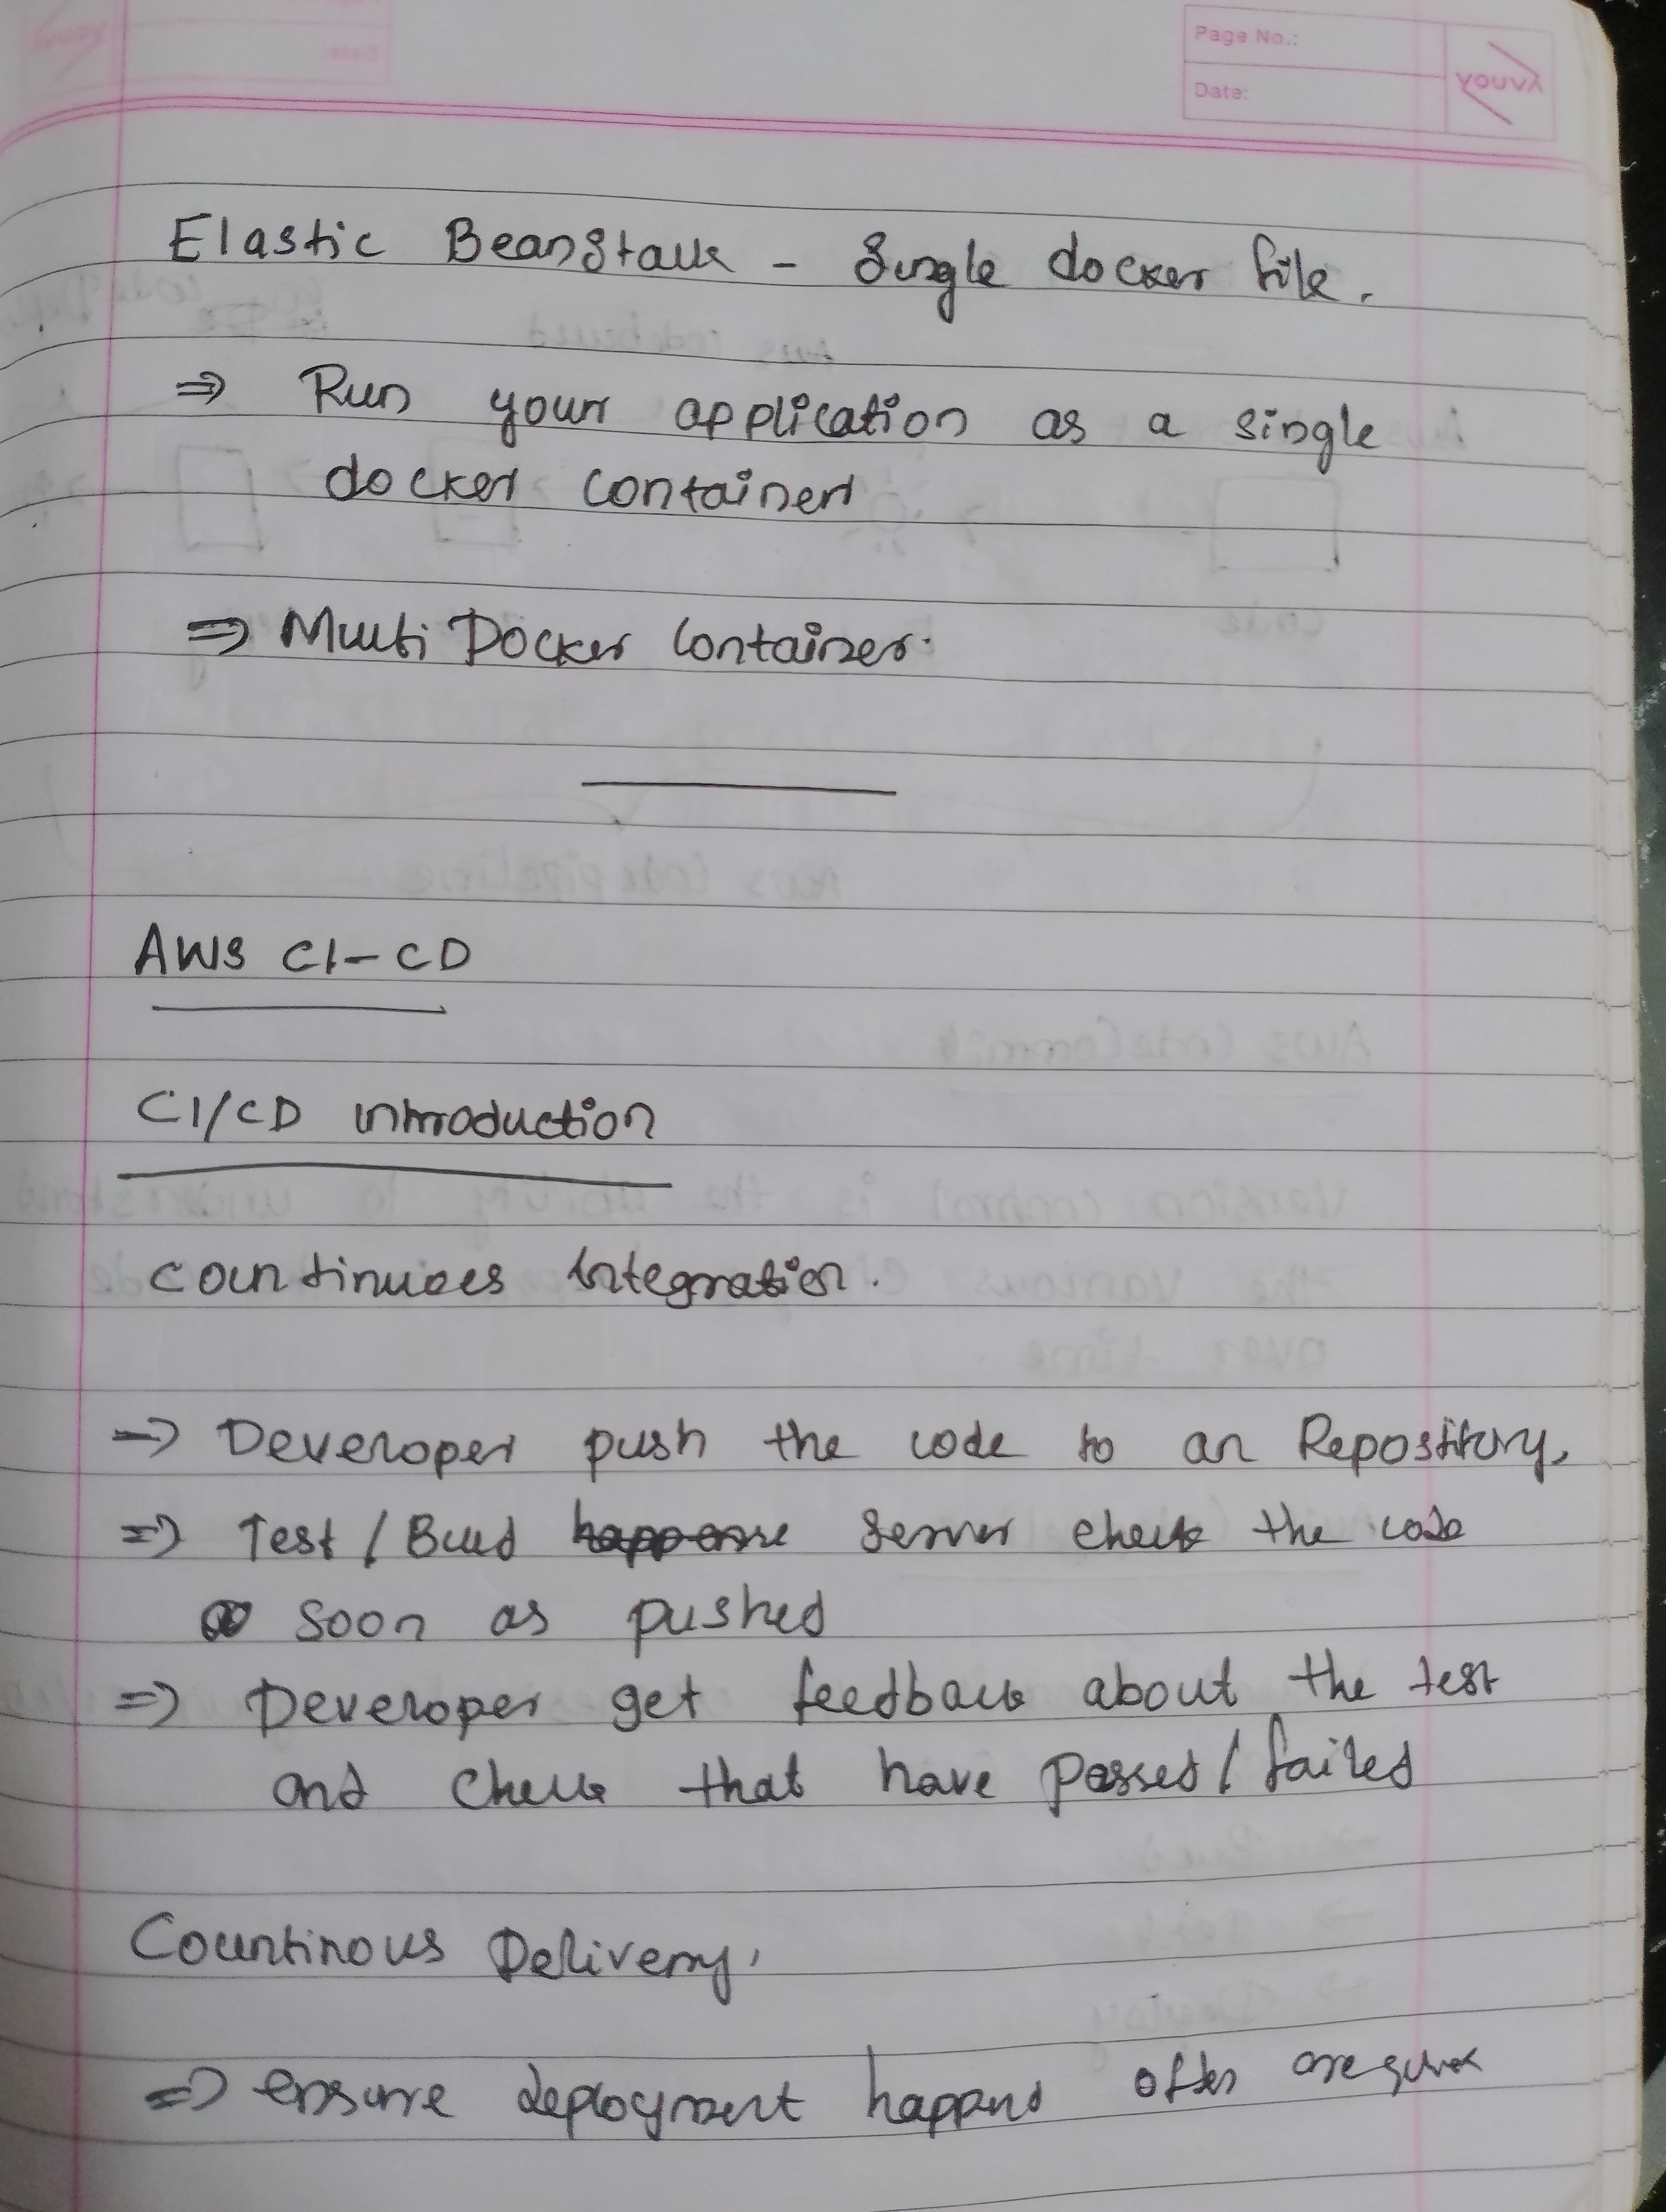 Page No.:
Date:
YOUVA
Elastic BeanStalk - Single docker file.
⇒ Run your application as a single
docker container
⇒ Multi Docker Container.
AWS CI-CD
CI/CD introduction
Countinuoes Integration.
⇒ Developer push the code to an Repository,
⇒ Test / Buid server check the code
soon as pushed
⇒ Developer get feedback about the test
and check that have passed / failed
Countinous Delivery,
⇒ ensure deployment happens often